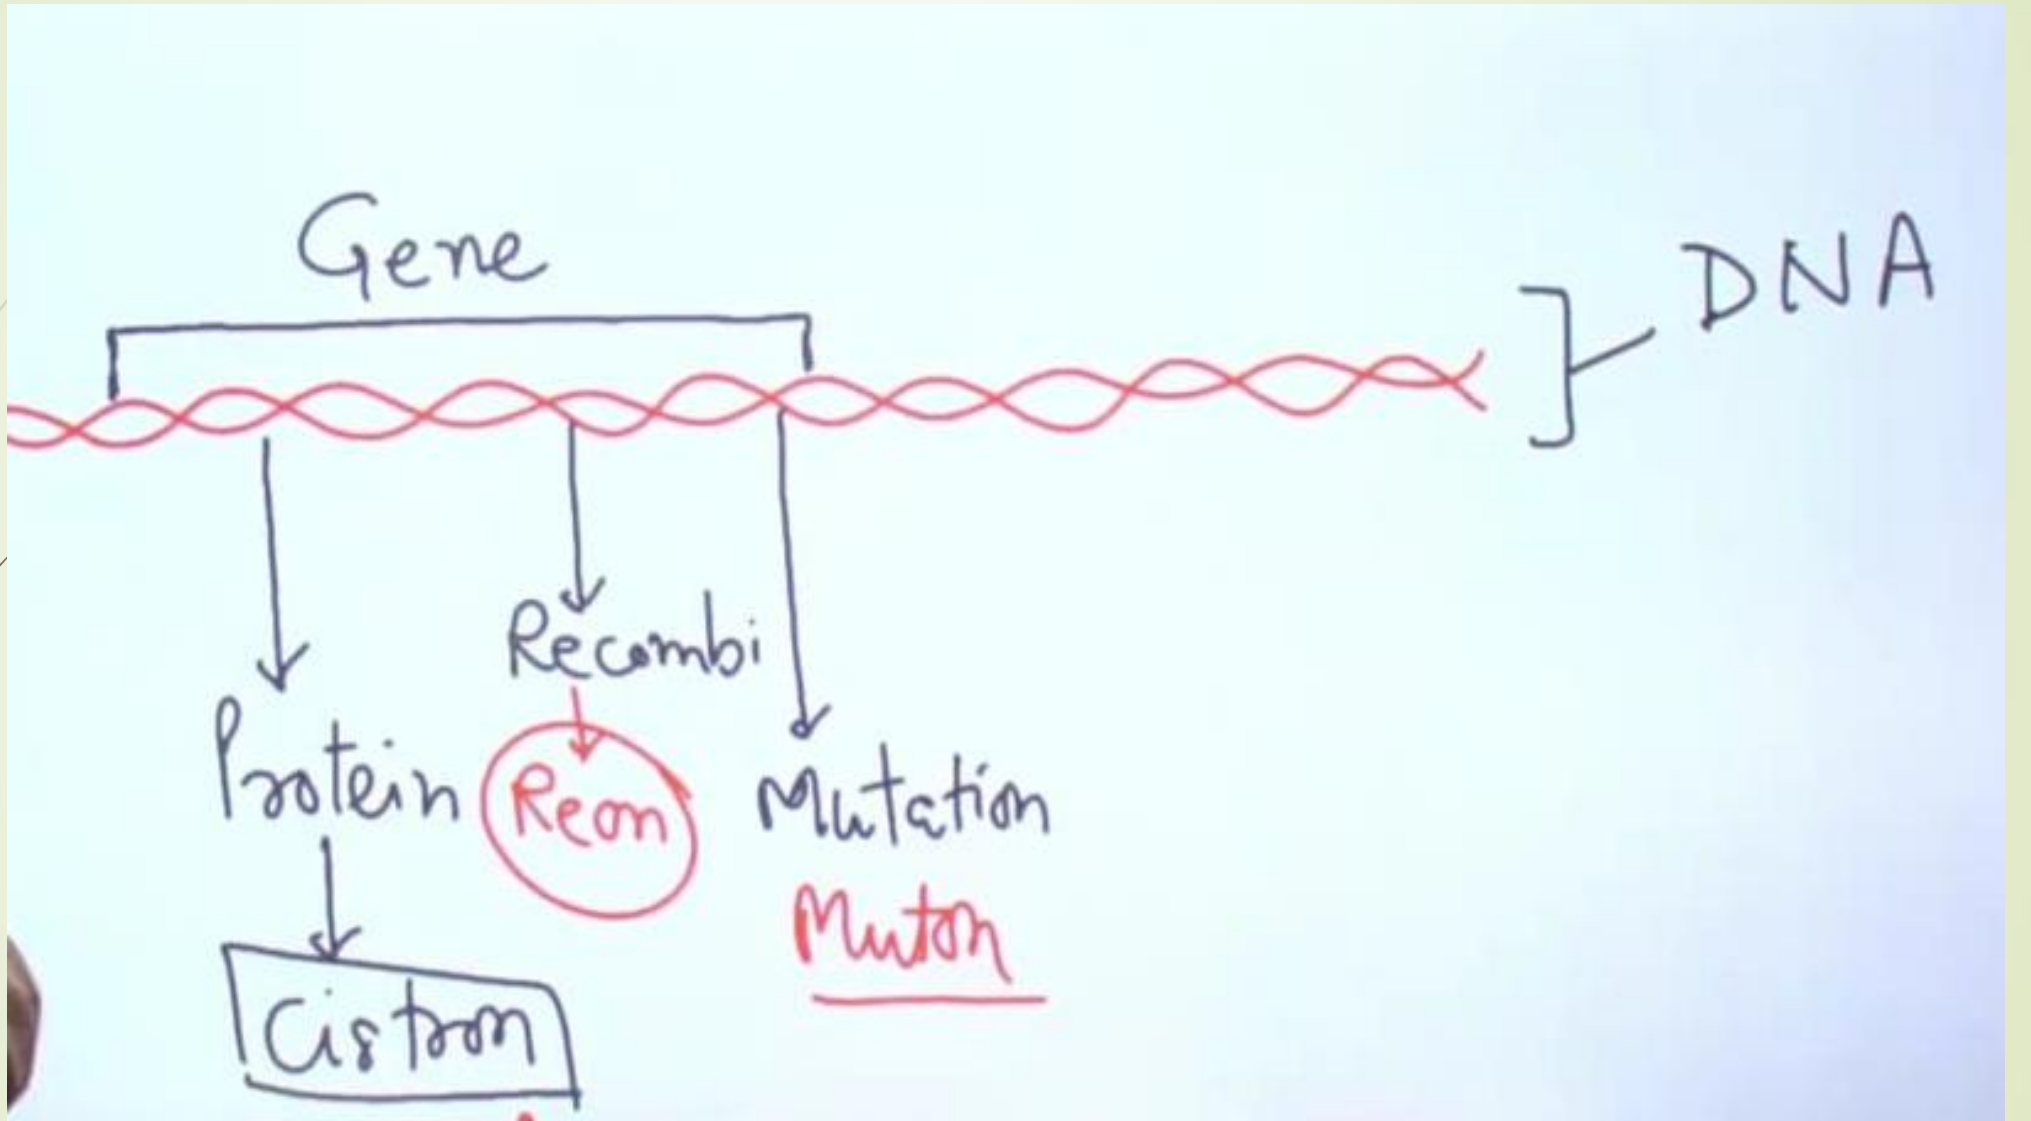 Gene
DNA
Recombi
Protein
Recon
Mutation
Muton
Cistron